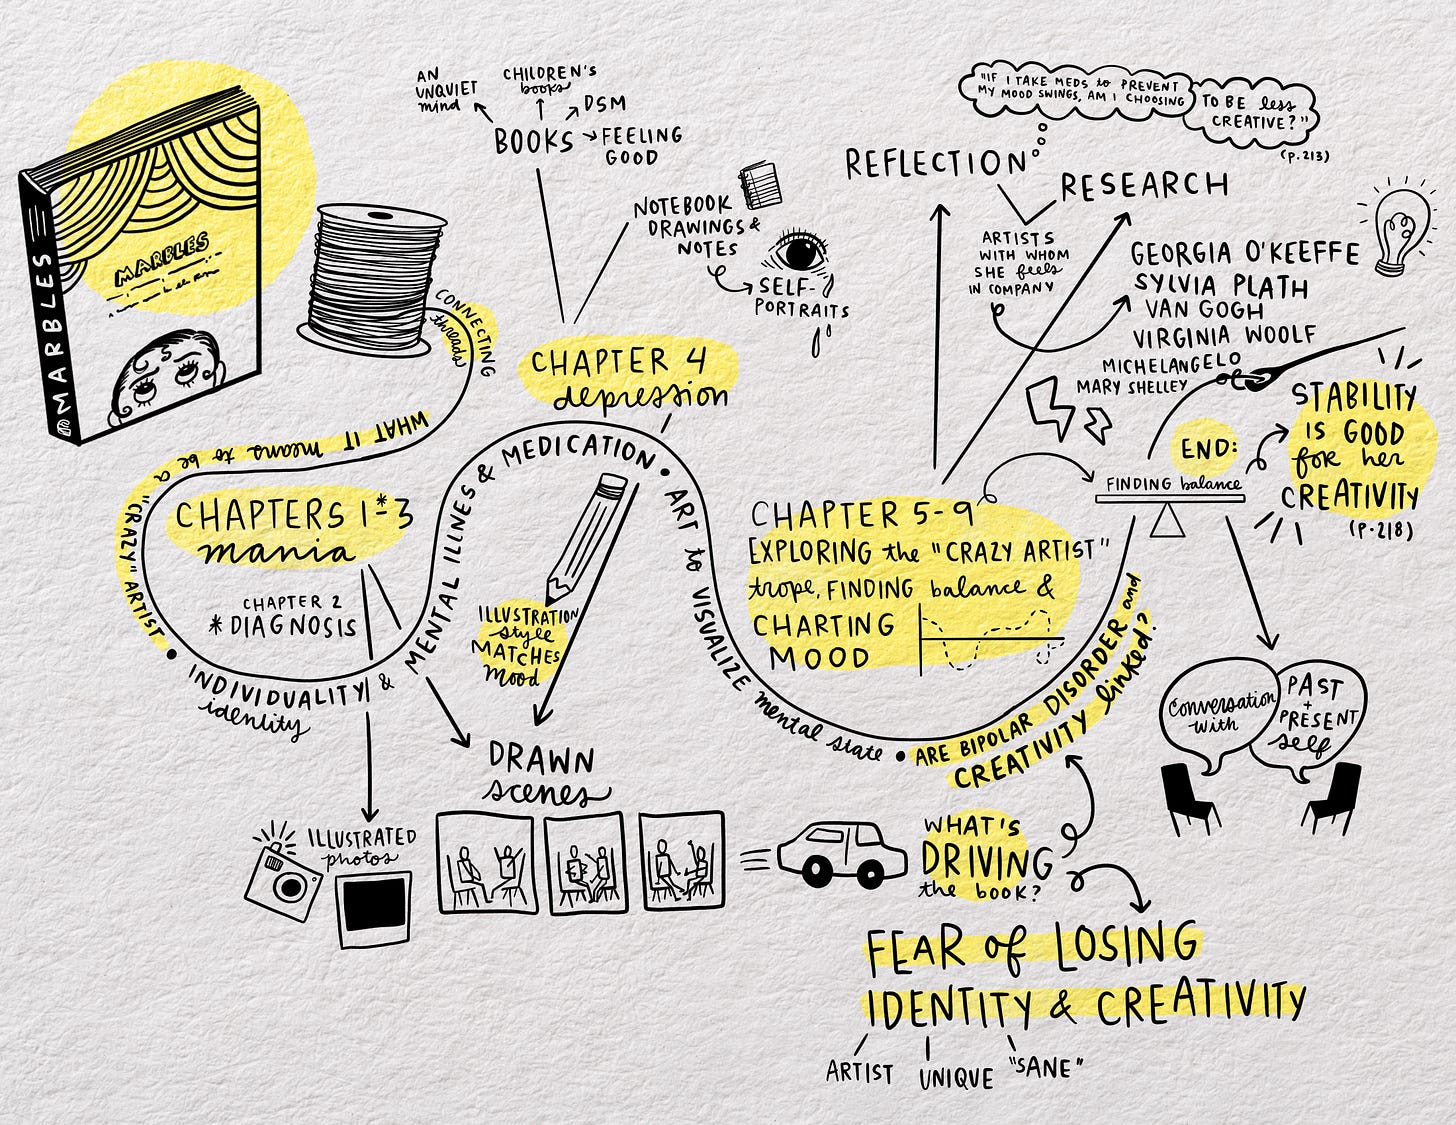 MARBLES
MARBLES
CONNECTING
threads
WHAT IT means to be a "CRAZY" ARTIST
CHAPTERS 1*-3
mania
CHAPTER 2
* DIAGNOSIS
• INDIVIDUALITY &
identity
ILLUSTRATED
photos
DRAWN
scenes
MENTAL ILLNES & MEDICATION
AN
UNQUIET
mind
CHILDREN'S
books
DSM
BOOKS
FEELING
GOOD
NOTEBOOK
DRAWINGS &
NOTES
SELF-
PORTRAITS
CHAPTER 4
depression
ILLUSTRATION
style
MATCHES
mood
• ART to VISUALIZE mental state
"IF I TAKE MEDS to PREVENT
MY MOOD SWINGS, AM I CHOOSING
TO BE less
CREATIVE?"
(P.213)
REFLECTION
RESEARCH
ARTISTS
WITH WHOM
SHE feels
IN COMPANY
GEORGIA O'KEEFFE
SYLVIA PLATH
VAN GOGH
VIRGINIA WOOLF
MICHELANGELO
MARY SHELLEY
CHAPTER 5-9
EXPLORING the "CRAZY ARTIST"
trope, FINDING balance &
CHARTING
MOOD
END:
FINDING balance
STABILITY
IS GOOD
for her
CREATIVITY
(P.218)
• ARE BIPOLAR DISORDER and
CREATIVITY linked?
Conversation
with
PAST
+
PRESENT
self
WHAT'S
DRIVING
the book?
FEAR of LOSING
IDENTITY & CREATIVITY
ARTIST
UNIQUE
"SANE"